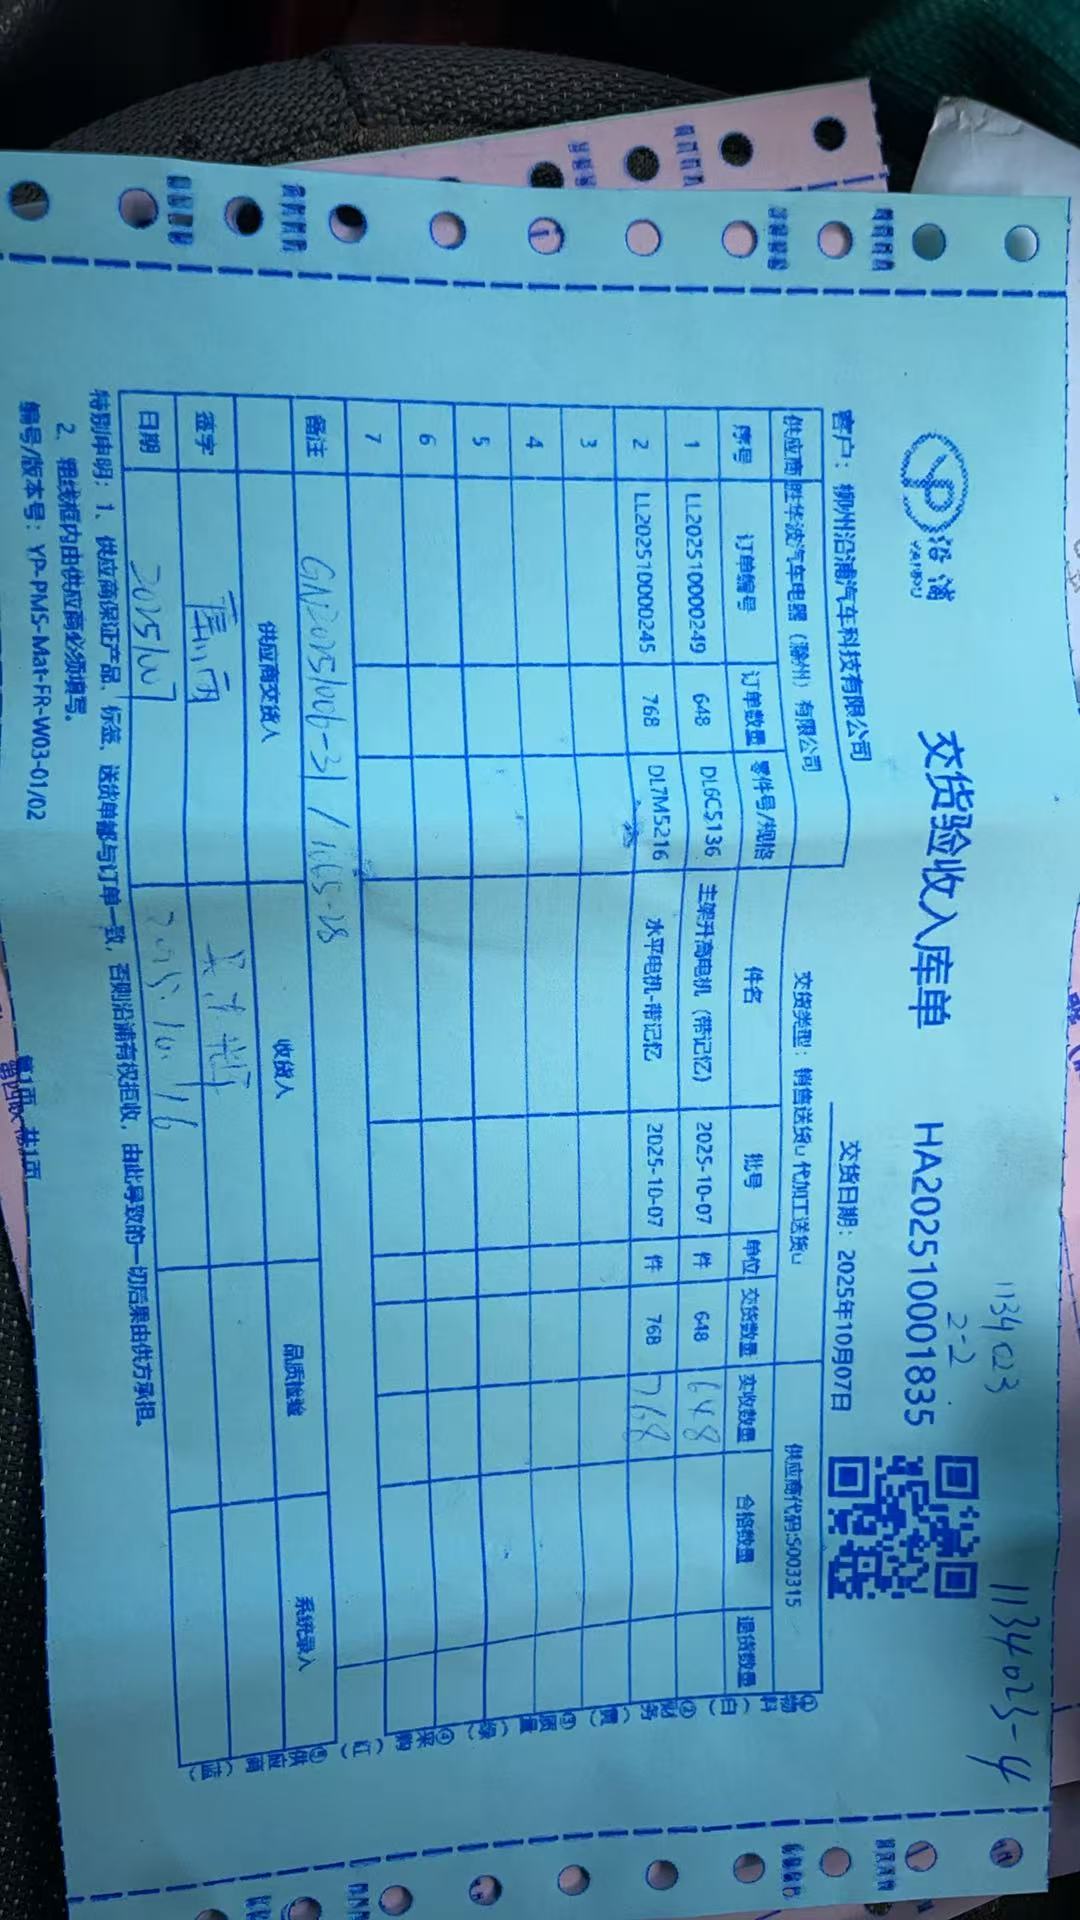 沿浦
YANPU
交货验收入库单
HA202510001835
1134023
2-2
1134023-4
客户：柳州沿浦汽车科技有限公司
交货日期：2025年10月07日
供应商 胜华波汽车电器（滁州）有限公司 交货类型：销售送货□ 代加工送货□ 供应商代码:S003315
序号 订单编号 订单数量 零件号/规格 件名 批号 单位 交货数量 实收数量 合格数量 退货数量
1 LL202510000249 648 DL6C5136 主架升高电机（带记忆） 2025-10-07 件 648 648
2 LL202510000245 768 DL7M5216 水平电机-带记忆 2025-10-07 件 768 768
3
4
5
6
7
备注 GN20251006-31 / 1665-28
供应商交货人 收货人 品质检验 系统录入
签字
日期 20251007 2025.10.16
①物料（白）②财务（黄）③质量（绿）④采购（红）⑤供应商（蓝）
特别申明：1、供应商保证产品、标签、送货单都与订单一致，否则沿浦有权拒收，由此导致的一切后果由供方承担。
2、粗线框内由供应商必须填写。
编号/版本号：YP-PMS-Mat-FR-W03-01/02
第1页 共1页